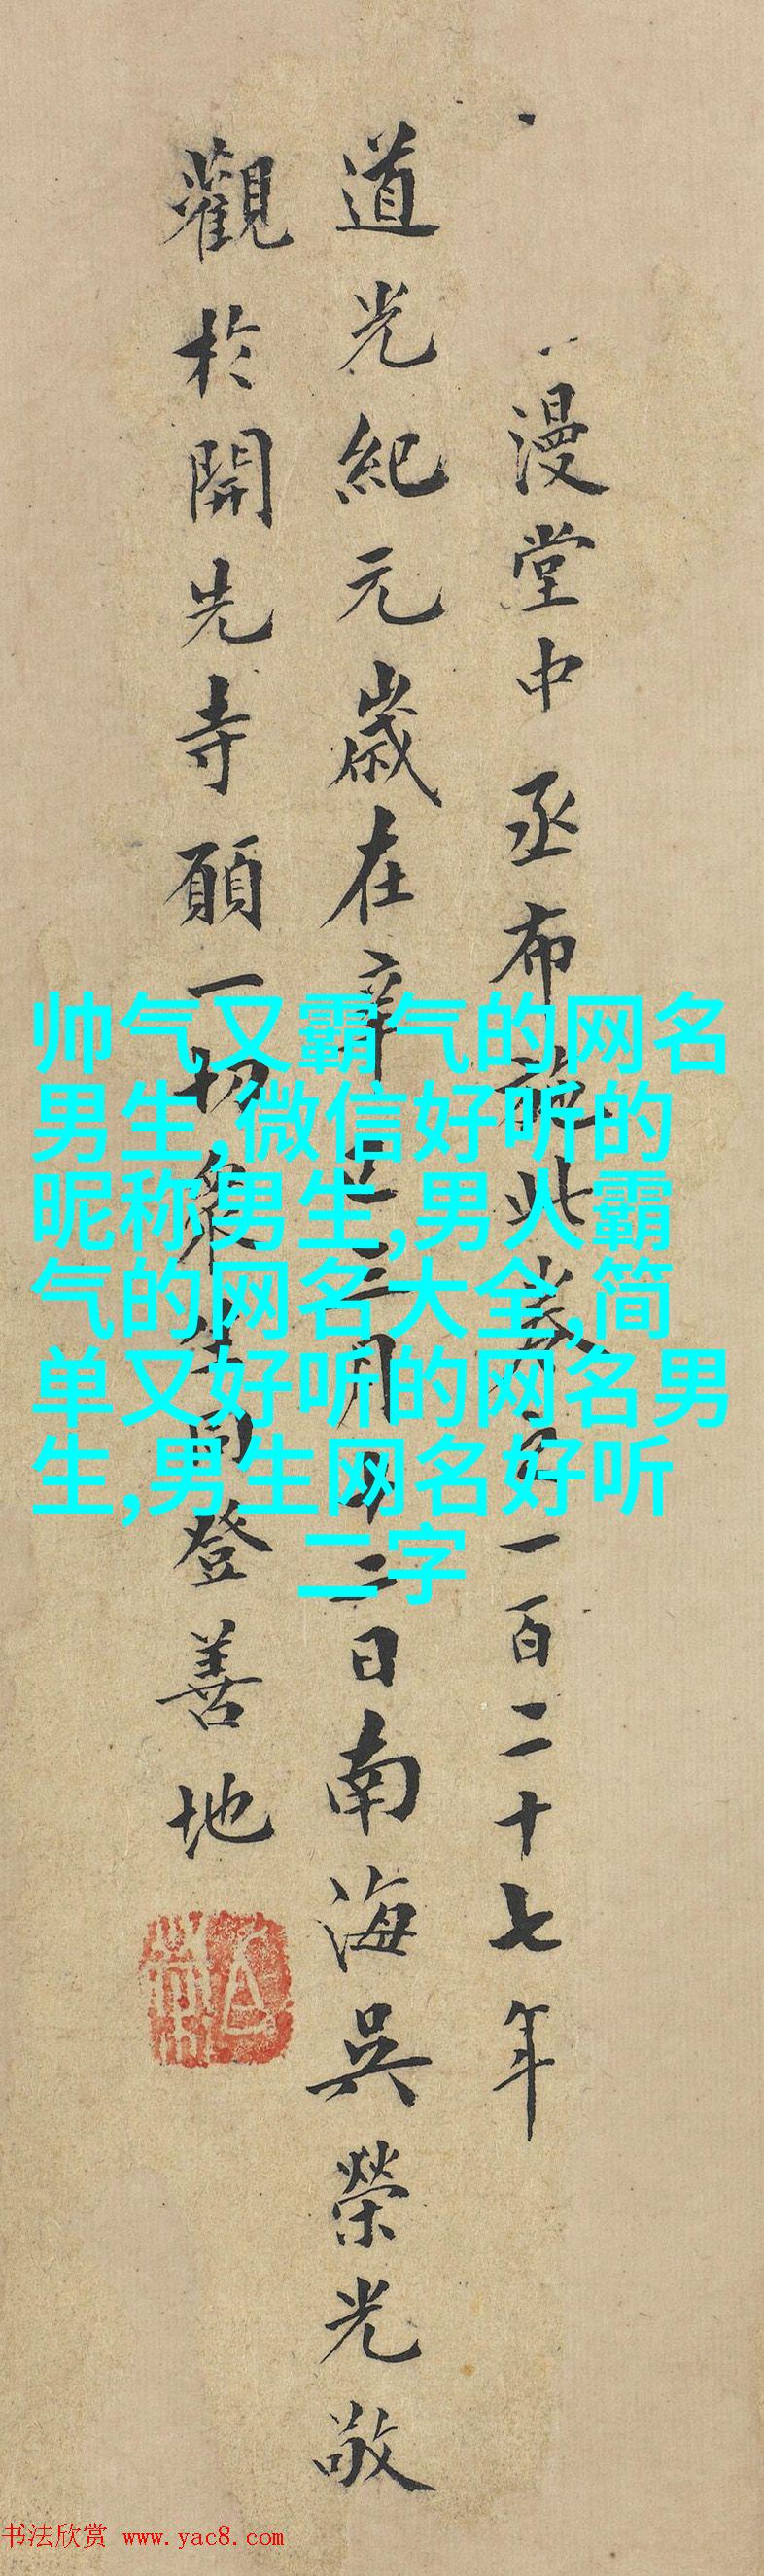 漫堂中丞布施此卷後一百二十七年
道光紀元歲在辛巳三月十二日南海吳榮光敬
觀於開先寺願一切眾生同登善地
帅气又霸气的网名
男生,微信好听的
昵称男生,男人霸
气的网名大全,简
单又好听的网名男
生,男生网名好听
二字
书法欣赏 www.yac8.com